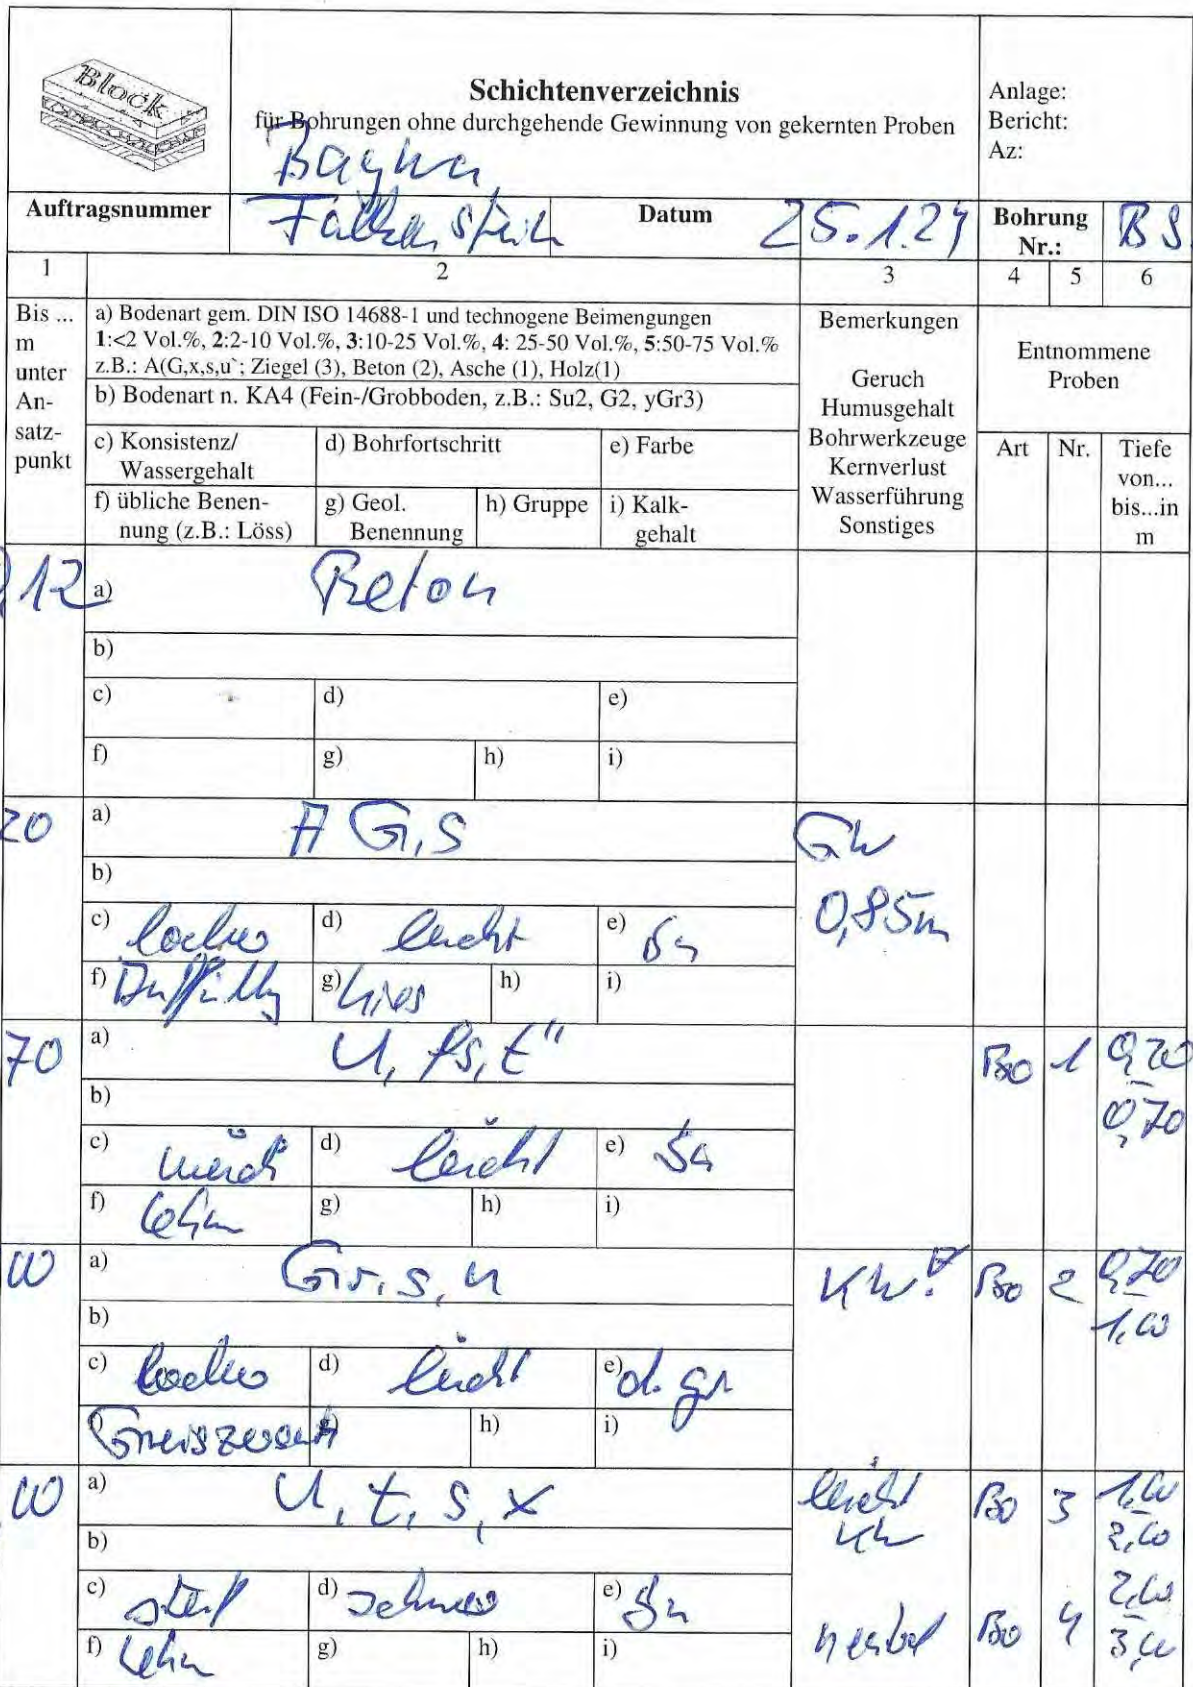 Block
Schichtenverzeichnis
für Bohrungen ohne durchgehende Gewinnung von gekernten Proben
Anlage:
Bericht:
Az:
Baywa
Auftragsnummer
Falkenstein
Datum
25.1.24
Bohrung
Nr.:
BS
1
2
3
4
5
6
Bis ...
m
unter
An-
satz-
punkt
a) Bodenart gem. DIN ISO 14688-1 und technogene Beimengungen
1:<2 Vol.%, 2:2-10 Vol.%, 3:10-25 Vol.%, 4: 25-50 Vol.%, 5:50-75 Vol.%
z.B.: A(G,x,s,u`; Ziegel (3), Beton (2), Asche (1), Holz(1)
b) Bodenart n. KA4 (Fein-/Grobboden, z.B.: Su2, G2, yGr3)
c) Konsistenz/
Wassergehalt
d) Bohrfortschritt
e) Farbe
f) übliche Benen-
nung (z.B.: Löss)
g) Geol.
Benennung
h) Gruppe
i) Kalk-
gehalt
Bemerkungen
Geruch
Humusgehalt
Bohrwerkzeuge
Kernverlust
Wasserführung
Sonstiges
Entnommene
Proben
Art
Nr.
Tiefe
von...
bis...in
m
12
a) Beton
b)
c)
d)
e)
f)
g)
h)
i)
20
a) A G,s
GW
0,85m
b)
c) locker
d) leicht
e)
f) Auffüllg
g) Kies
h)
i)
70
a) U, fs, t"
Bo 1 0,20
0,70
b)
c) weich
d) leicht
e)
f) Lehm
g)
h)
i)
00
a) Gr, s, u
KW!
Bo 2 0,70
1,00
b)
c) locker
d) leicht
e) d. gr
f) Gneiszersatz
h)
i)
00
a) U, t, s, x
leicht
KW
Bo 3 1,00
2,00
b)
c) steif
d) schwer
e)
Bo 4 2,00
3,00
f) Lehm
g)
h)
i)